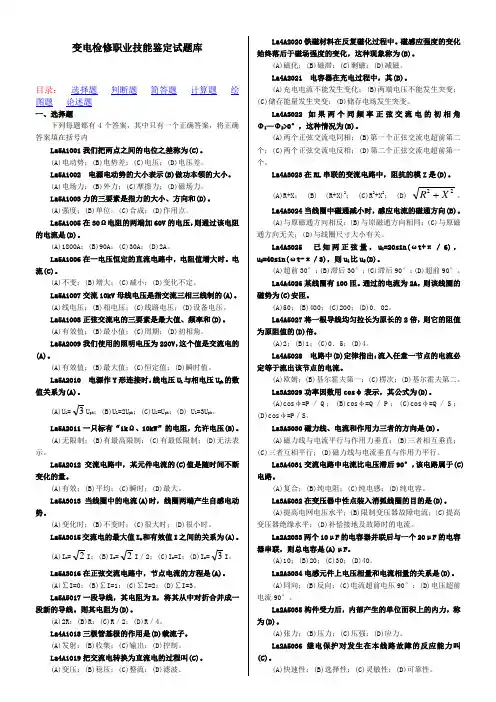 变电检修职业技能鉴定试题库
目录: 选择题 判断题 简答题 计算题 绘
图题 论述题
一、选择题
下列每题都有4个答案,其中只有一个正确答案,将正确
答案填在括号内
La5A1001我们把两点之间的电位之差称为(C)。
(A)电动势;(B)电势差;(C)电压;(D)电压差。
La5A1002 电源电动势的大小表示(B)做功本领的大小。
(A)电场力;(B)外力;(C)摩擦力;(D)磁场力。
La5A1003力的三要素是指力的大小、方向和(D)。
(A)强度;(B)单位;(C)合成;(D)作用点。
La5A1005在30Ω电阻的两端加60V的电压,则通过该电阻
的电流是(D)。
(A)1800A;(B)90A;(C)30A;(D)2A。
La5A1006在一电压恒定的直流电路中,电阻值增大时,电
流(C)。
(A)不变;(B)增大;(C)减小;(D)变化不定。
La5A1007交流10kV母线电压是指交流三相三线制的(A)。
(A)线电压;(B)相电压;(C)线路电压;(D)设备电压。
La5A1008正弦交流电的三要素是最大值、频率和(D)。
(A)有效值;(B)最小值;(C)周期;(D)初相角。
La5A2009我们使用的照明电压为220V,这个值是交流电的
(A)。
(A)有效值;(B)最大值;(C)恒定值;(D)瞬时值。
La5A2010 电源作Y形连接时,线电压UL与相电压Uph的数
值关系为(A)。
(A)UL=√3Uph;(B)UL=2Uph;(C)UL=Uph;(D) UL=3Uph。
La5A2011一只标有“1kΩ、10kW”的电阻,允许电压(B)。
(A)无限制;(B)有最高限制;(C)有最低限制;(D)无法表
示。
La5A2012 交流电路中,某元件电流的(C)值是随时间不断
变化的量。
(A)有效;(B)平均;(C)瞬时;(D)最大。
La5A3013 当线圈中的电流(A)时,线圈两端产生自感电动
势。
(A)变化时;(B)不变时;(C)很大时;(D)很小时。
La5A3015交流电的最大值Im和有效值I之间的关系为(A)。
(A)Im=√2I;(B)Im=√2I/2;(C)Im=I;(D)Im=√3I。
La5A3016在正弦交流电路中,节点电流的方程是(A)。
(A)∑I=0;(B)∑I=1;(C)∑I=2;(D)∑I=3。
La5A5017一段导线,其电阻为R,将其从中对折合并成一
段新的导线,则其电阻为(D)。
(A)2R;(B)R;(C)R/2;(D)R/4。
La4A1018三极管基极的作用是(D)载流子。
(A)发射;(B)收集;(C)输出;(D)控制。
La4A1019把交流电转换为直流电的过程叫(C)。
(A)变压;(B)稳压;(C)整流;(D)滤波。
La4A2020铁磁材料在反复磁化过程中,磁感应强度的变化
始终落后于磁场强度的变化,这种现象称为(B)。
(A)磁化;(B)磁滞;(C)剩磁;(D)减磁。
La4A2021 电容器在充电过程中,其(B)。
(A)充电电流不能发生变化;(B)两端电压不能发生突变;
(C)储存能量发生突变;(D)储存电场发生突变。
La4A3022如果两个同频率正弦交流电的初相角
Φ1—Φ2>0°,这种情况为(B)。
(A)两个正弦交流电同相;(B)第一个正弦交流电超前第二
个;(C)两个正弦交流电反相;(D)第二个正弦交流电超前第一
个。
La4A3023在RL串联的交流电路中,阻抗的模Z是(D)。
(A)R+X; (B) (R+X)²; (C)R²+X²; (D) √R²+X²。
La4A3024当线圈中磁通减小时,感应电流的磁通方向(B)。
(A)与原磁通方向相反;(B)与原磁通方向相同;(C)与原磁
通方向无关;(D)与线圈尺寸大小有关。
La4A3025 已知两正弦量,u1=20sin(ωt+π/6),
u2=40sin(ωt-π/3),则u1比u2(D)。
(A)超前30°;(B)滞后30°;(C)滞后90°;(D)超前90°。
La4A4026某线圈有100匝,通过的电流为2A,则该线圈的
磁势为(C)安匝。
(A)50;(B)400;(C)200;(D)0.02。
La4A5027将一根导线均匀拉长为原长的2倍,则它的阻值
为原阻值的(D)倍。
(A)2;(B)1;(C)0.5;(D)4。
La4A5028 电路中(D)定律指出:流入任意一节点的电流必
定等于流出该节点的电流。
(A)欧姆;(B)基尔霍夫第一;(C)楞次;(D)基尔霍夫第二。
La3A2029功率因数用cosφ表示,其公式为(D)。
(A)cosφ=P/Q;(B)cosφ=Q/P;(C)cosφ=Q/S;
(D)cosφ=P/S。
La3A3030磁力线、电流和作用力三者的方向是(B)。
(A)磁力线与电流平行与作用力垂直;(B)三者相互垂直;
(C)三者互相平行;(D)磁力线与电流垂直与作用力平行。
La3A4031交流电路中电流比电压滞后90°,该电路属于(C)
电路。
(A)复合;(B)纯电阻;(C)纯电感;(D)纯电容。
La3A5032在变压器中性点装入消弧线圈的目的是(D)。
(A)提高电网电压水平;(B)限制变压器故障电流;(C)提高
变压器绝缘水平;(D)补偿接地及故障时的电流。
La2A2033两个10μF的电容器并联后与一个20μF的电容
器串联,则总电容是(A)μF。
(A)10;(B)20;(C)30;(D)40。
La2A3034电感元件上电压相量和电流相量的关系是(D)。
(A)同向;(B)反向;(C)电流超前电压90°;(D)电压超前
电流90°。
La2A5035构件受力后,内部产生的单位面积上的内力,称
为(D)。
(A)张力;(B)压力;(C)压强;(D)应力。
La2A5036继电保护对发生在本线路故障的反应能力叫
(C)。
(A)快速性;(B)选择性;(C)灵敏性;(D)可靠性。